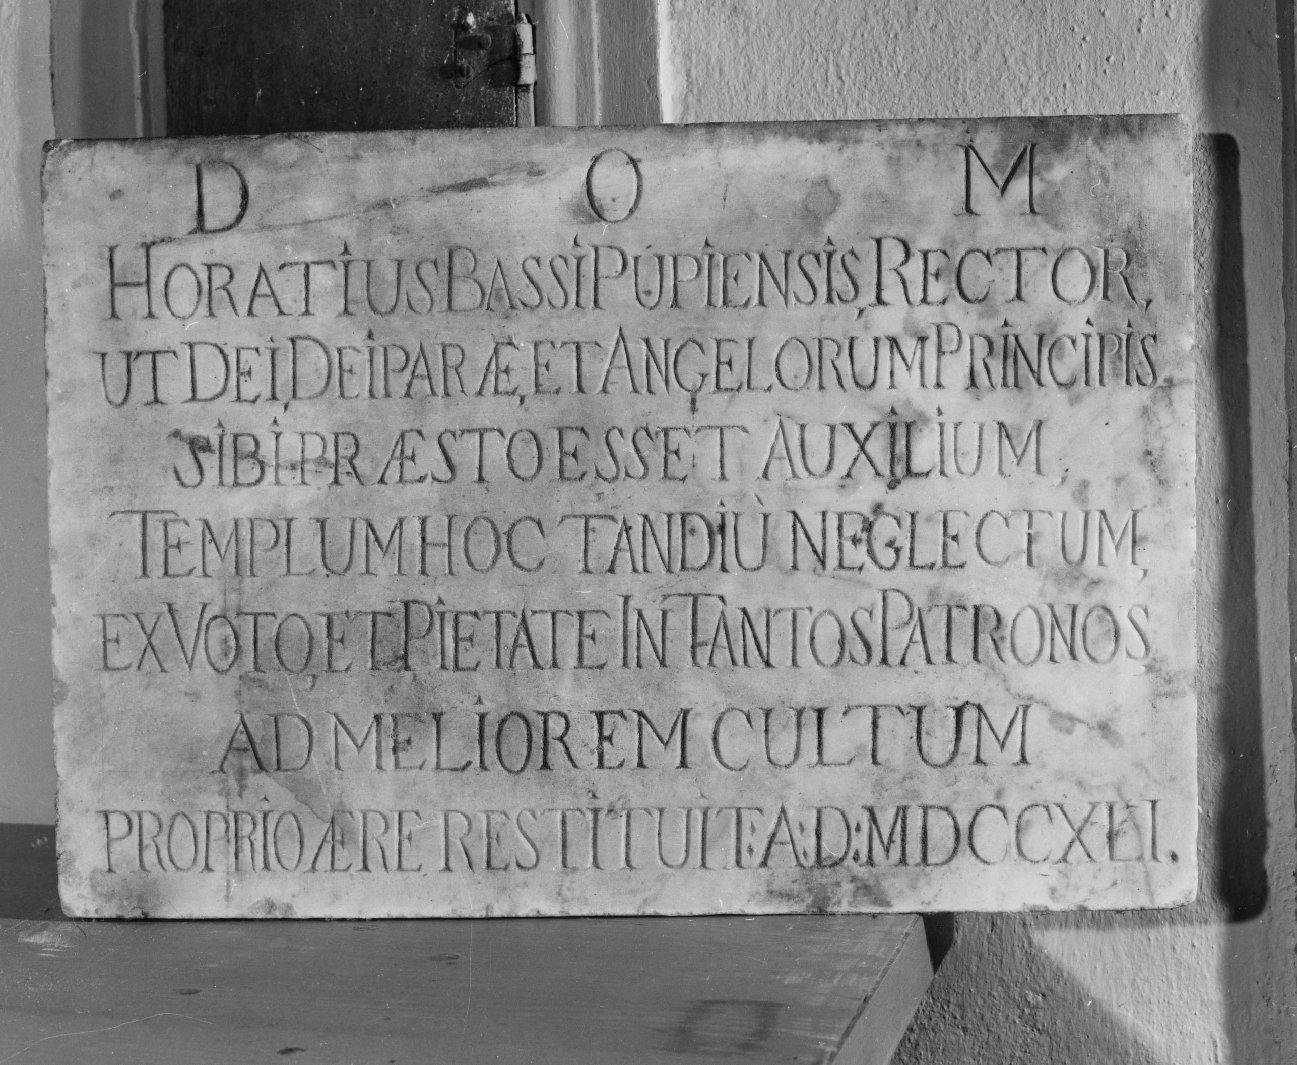 D O M
HORATIUS BASSI PUPIENSIS, RECTOR,
UT DEI, DEIPARÆ, ET ANGELORUM PRINCIPIS
SIBI PRÆSTO ESSET AUXILIUM,
TEMPLUM HOC TANDIU NEGLECTUM,
EX VOTO, ET PIETATE IN TANTOS PATRONOS
AD MELIOREM CULTUM
PROPRIO ÆRE RESTITUIT A: D: MDCCXLI.